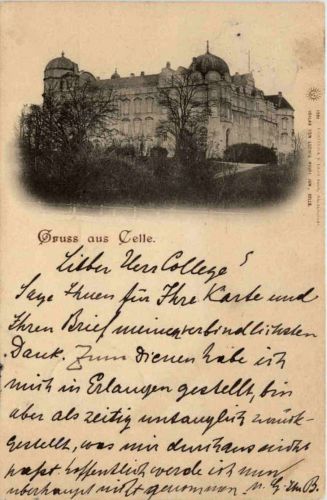 Gruss aus Celle.
Lieber Herr College!
Sage Ihnen für Ihre Karte und
Ihren Brief meinen verbindlichsten
Dank. Zum dienen habe ich
mich in Erlangen gestellt, bin
aber als zeitig untauglich zurück-
gestellt, was mir durchaus nicht
passt. Hoffentlich werde ich nun
überhaupt nicht genommen.